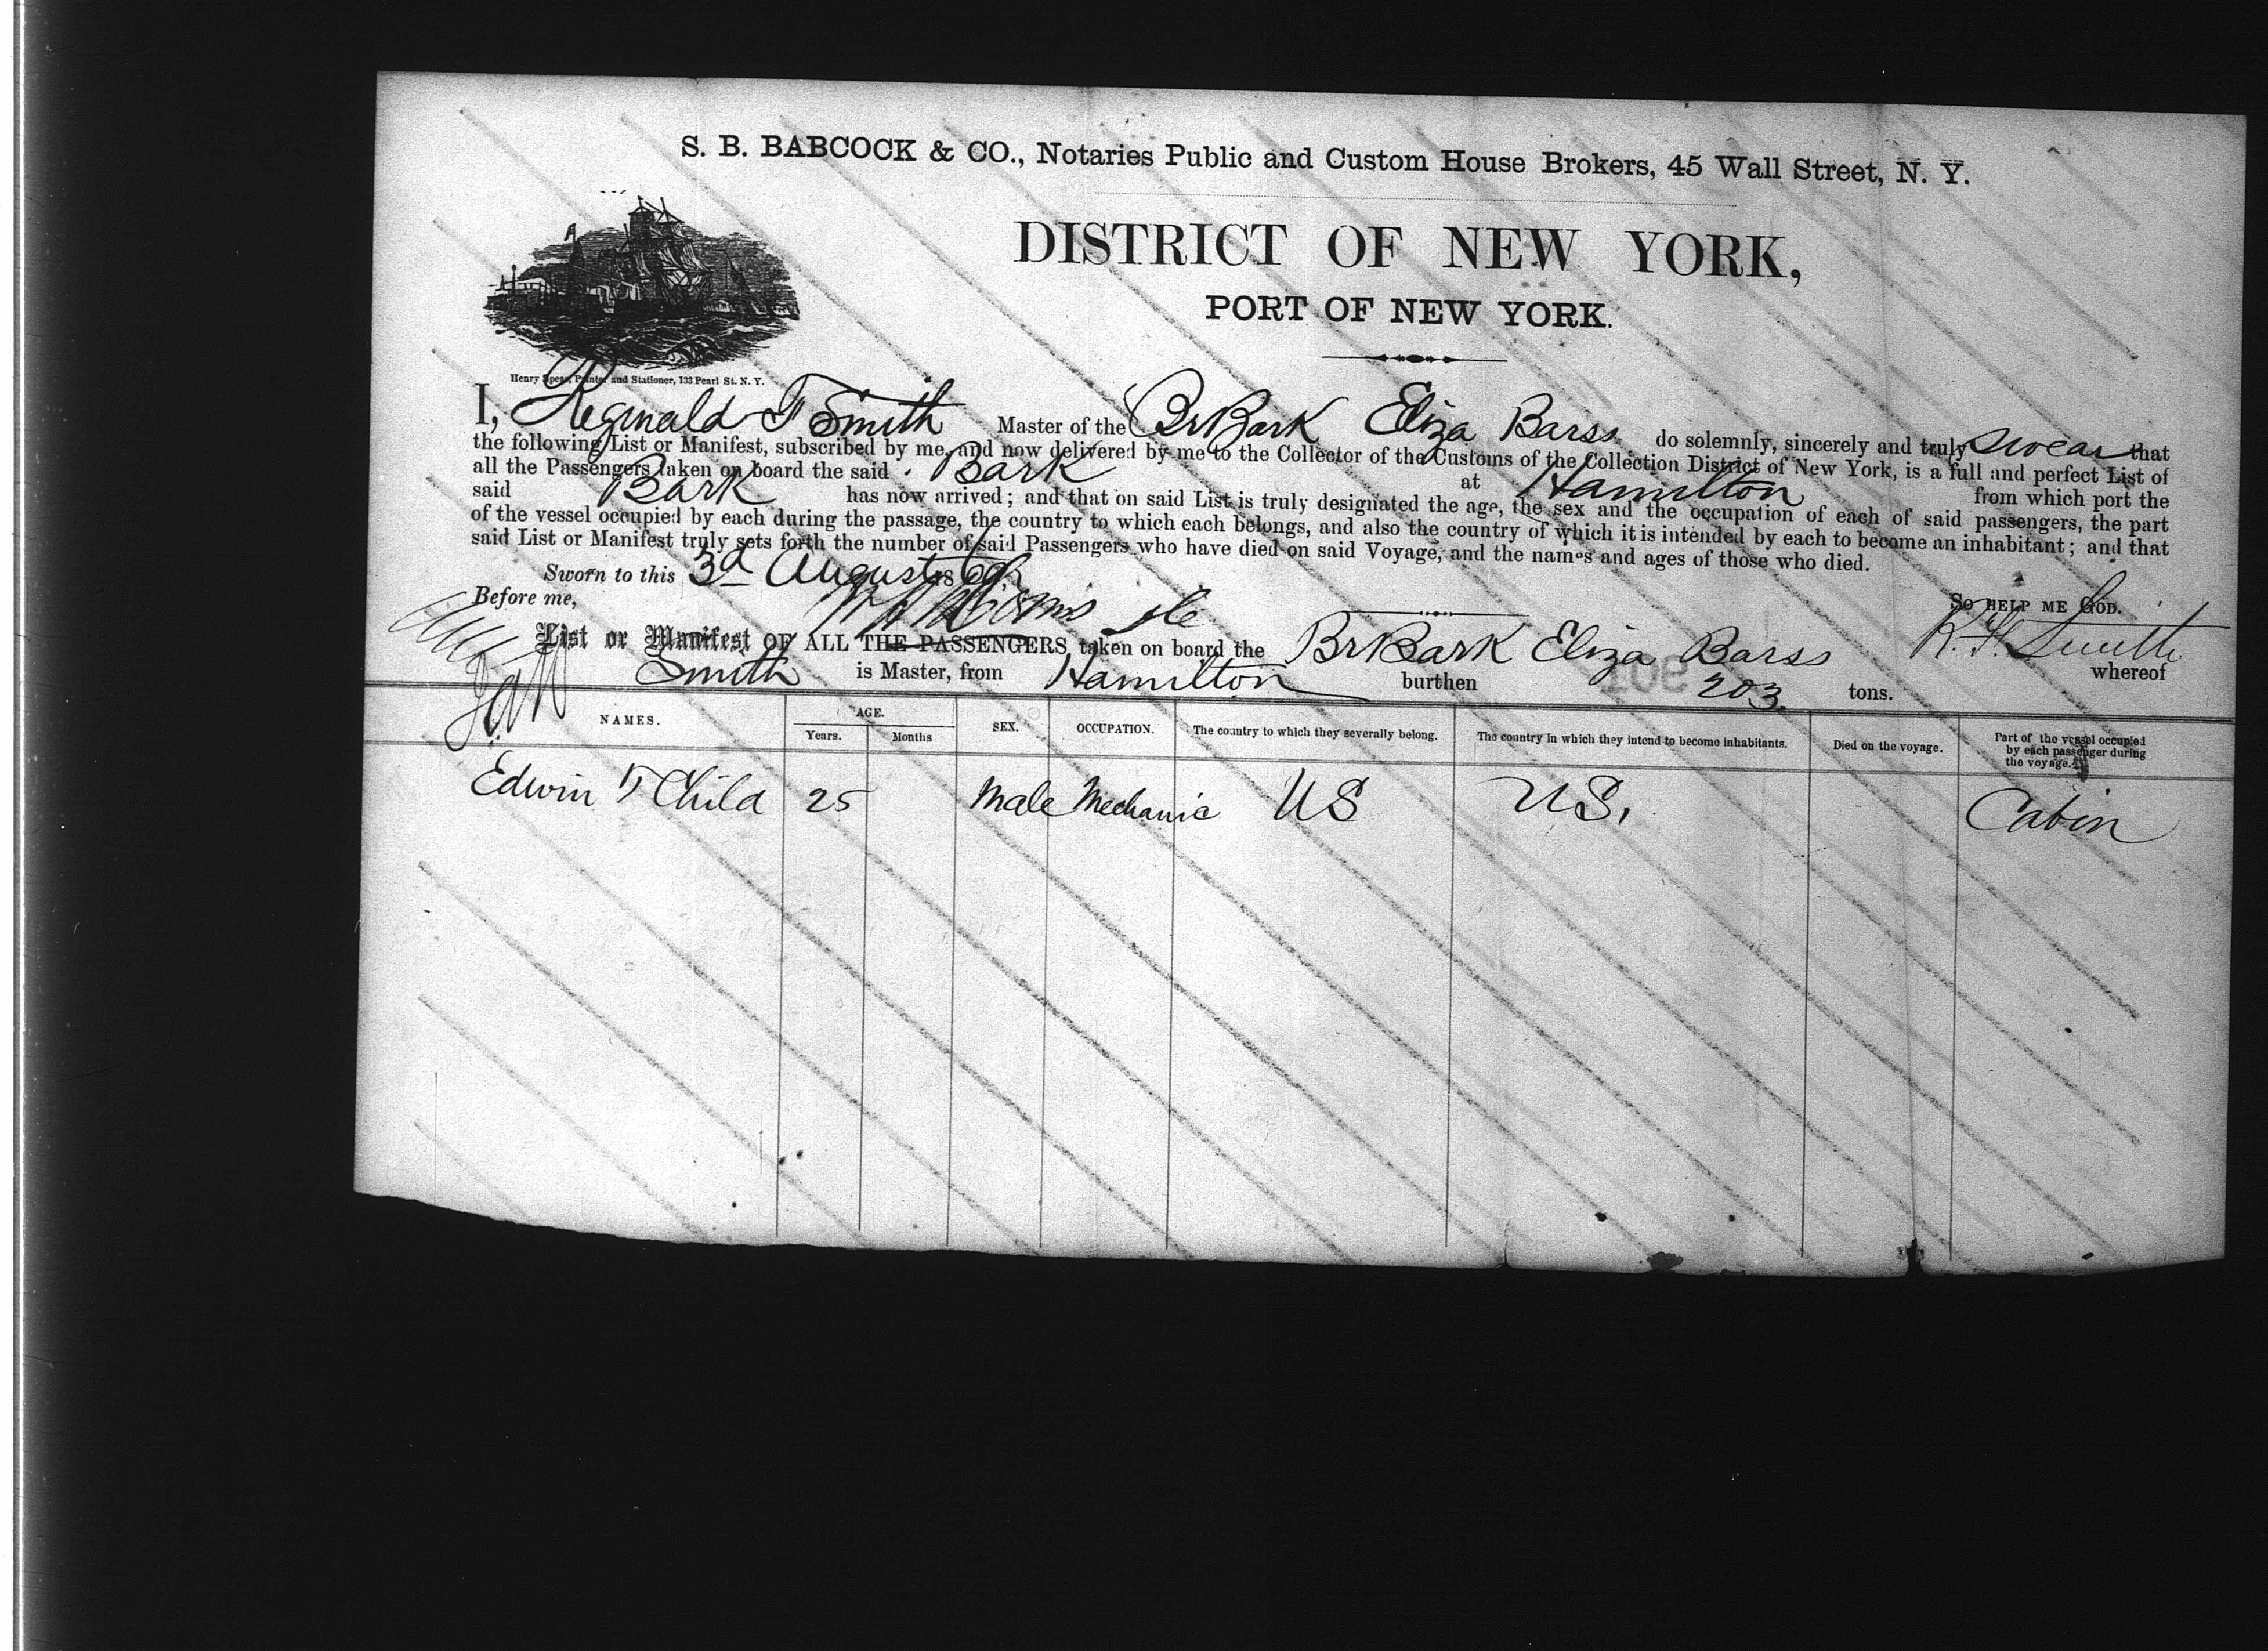 S. B. BABCOCK & CO., Notaries Public and Custom House Brokers, 45 Wall Street, N. Y.
DISTRICT OF NEW YORK,
PORT OF NEW YORK.
Henry Spear, Printer and Stationer, 133 Pearl St. N. Y.
I, Reginald F Smith Master of the Br Bark Eliza Barss do solemnly, sincerely and truly swear that
the following List or Manifest, subscribed by me, and now delivered by me to the Collector of the Customs of the Collection District of New York, is a full and perfect List of
all the Passengers taken on board the said Bark at Hamilton from which port the
said Bark has now arrived; and that on said List is truly designated the age, the sex and the occupation of each of said passengers, the part
of the vessel occupied by each during the passage, the country to which each belongs, and also the country of which it is intended by each to become an inhabitant; and that
said List or Manifest truly sets forth the number of said Passengers who have died on said Voyage, and the names and ages of those who died.
Sworn to this 3d August 1869
So HELP ME GOD.
Before me,
R. F. Smith
List or Manifest OF ALL THE PASSENGERS taken on board the Br Bark Eliza Barss whereof
Smith is Master, from Hamilton burthen 203 tons.
NAMES. AGE. SEX. OCCUPATION. The country to which they severally belong. The country in which they intend to become inhabitants. Died on the voyage. Part of the vessel occupied by each passenger during the voyage.
Years. Months
Edwin T Child 25 Male Mechanic US US, Cabin